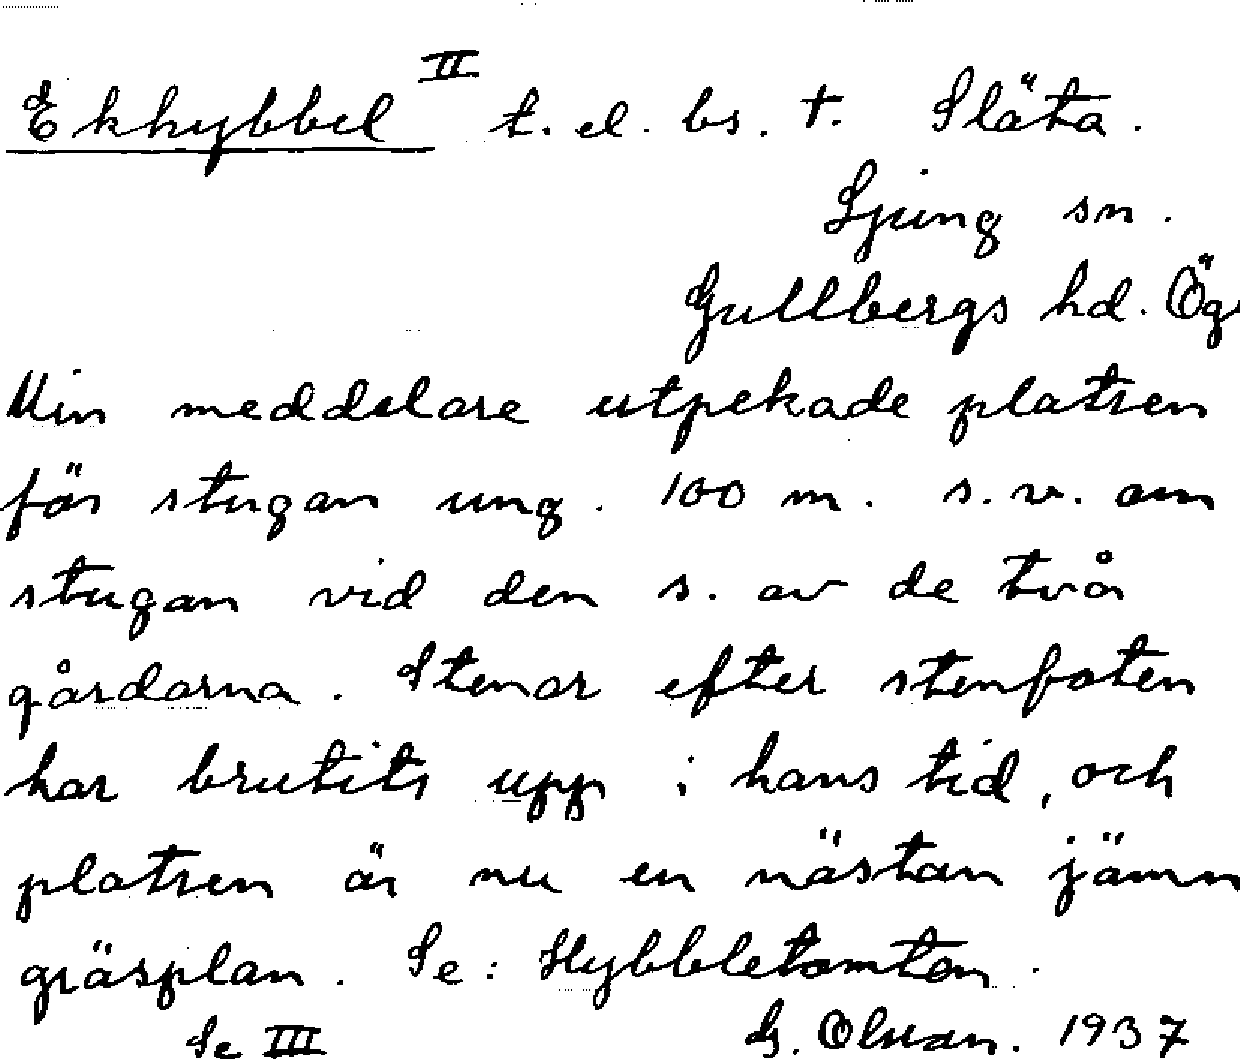 Ekhybbel II t. el. bs. t. Släta.
Ljung sn.
Gullbergs hd. Ög.
Min meddelare utpekade platsen
för stugan ung. 100 m. s.v. om
stugan vid den s. av de två
gårdarna. Stenar efter stenfoten
har brutits upp i hans tid, och
platsen är nu en nästan jämn
gräsplan. Se: Hybbletomten.
Se III G. Olsson. 1937